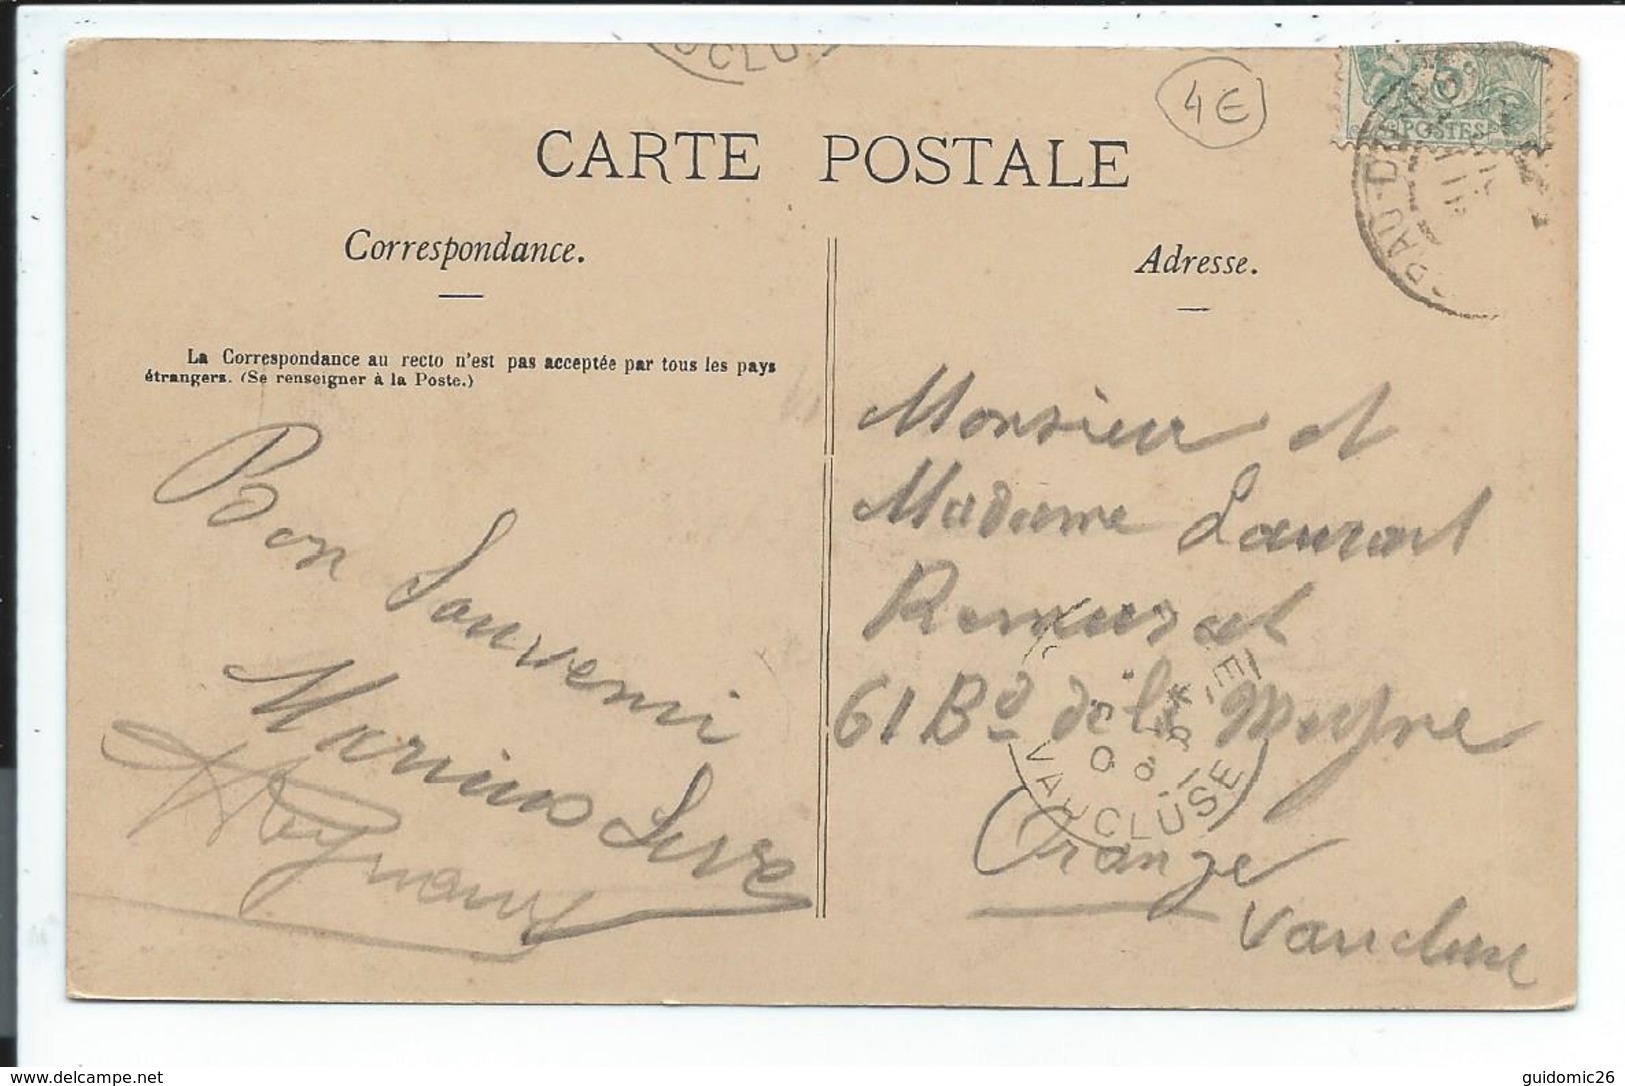 UCLU
4E
5
POSTES
CARTE POSTALE
Correspondance.
Adresse.
GRAU-D
La Correspondance au recto n'est pas acceptée par tous les pays
étrangers. (Se renseigner à la Poste.)
Bon Souvenir
Marius
Monsieur et
Madame Laurent
61 Bd de la
VAUCLUSE
Orange
Vaucluse
www.delcampe.net
guidomic26